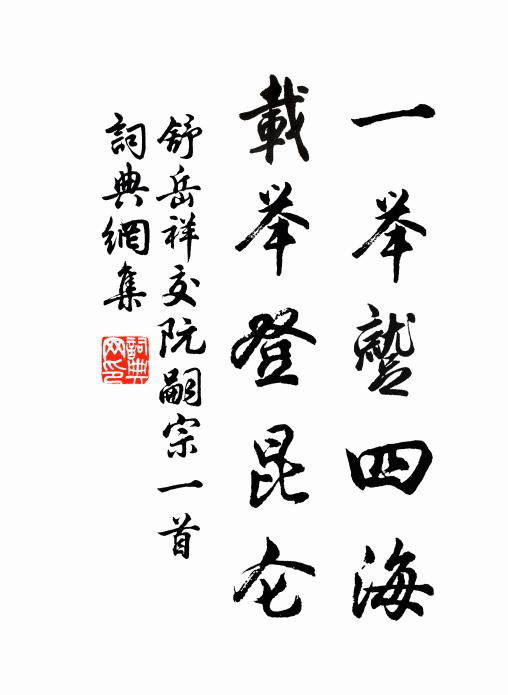 一举蹔四海
載举登昆仑
舒岳祥交阮嗣宗一首
詞典網集
詞典网印